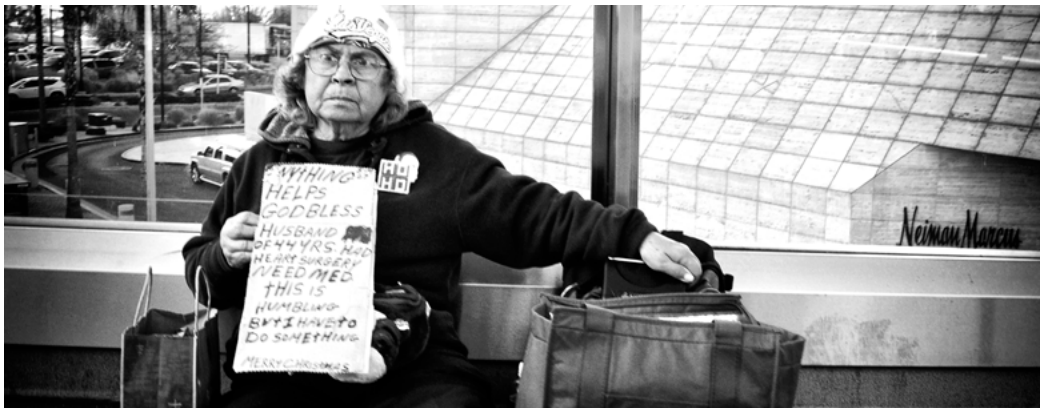 "ANYTHING"
HELPS
GOD BLESS
HUSBAND
OF 44 YRS. HAD
HEART SURGERY
NEED MED.
THIS IS
HUMBLING
BUT I HAVE TO
DO SOMETHING
MERRY CHRISTMAS
Neiman Marcus